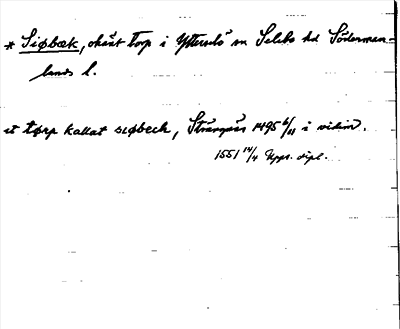 * Siøbæk, okänt torp i Ytterselö sn Selebo hd Söderman-
lands l.
et tørp kallat siøbeck, Strängnäs 1495 6/11 i vidim.
1551 14/4 Upps. dipl.